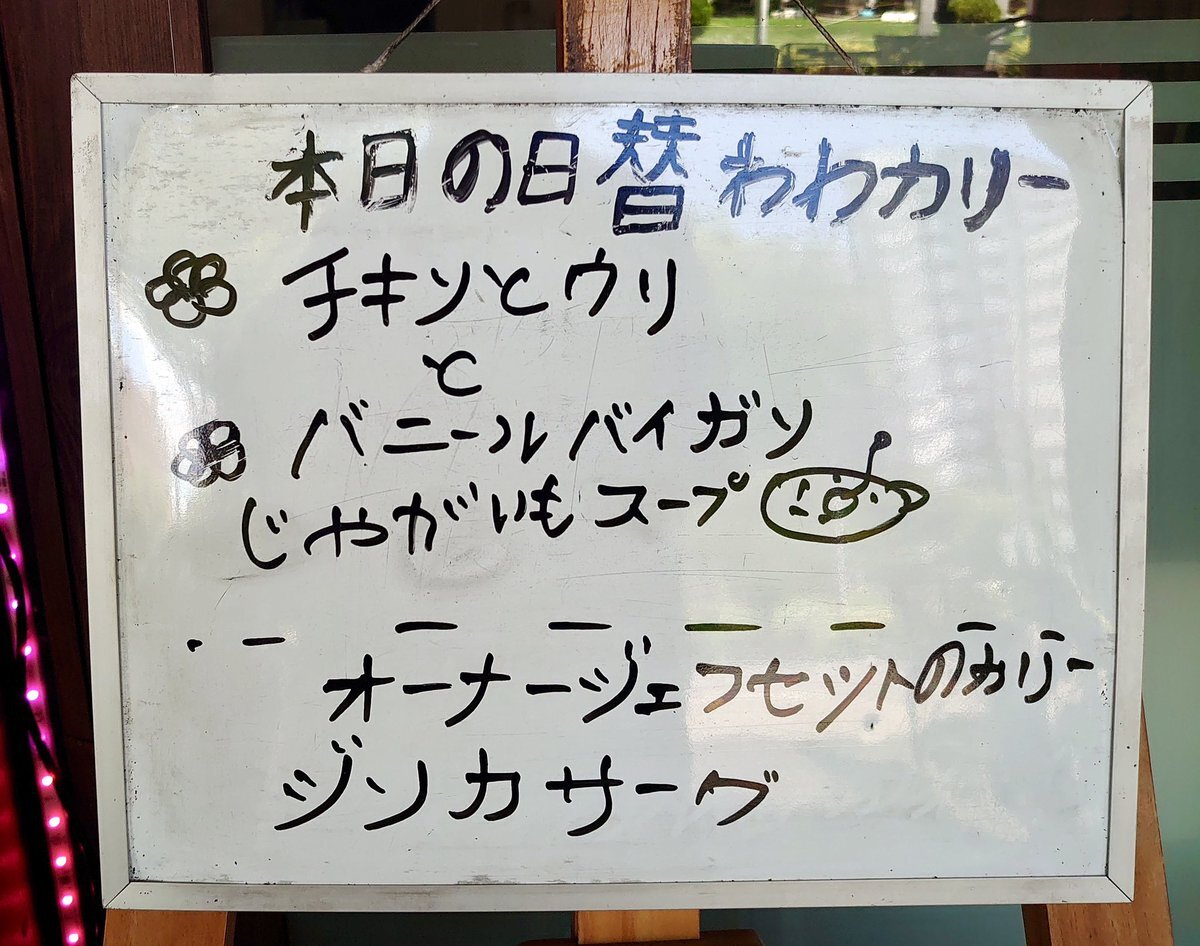 本日の日替わわカリー
チキソとウリ
と
バニールバイガソ
じゃがいもスープ
オーナージェフセットのカリー
ジンカサーグ